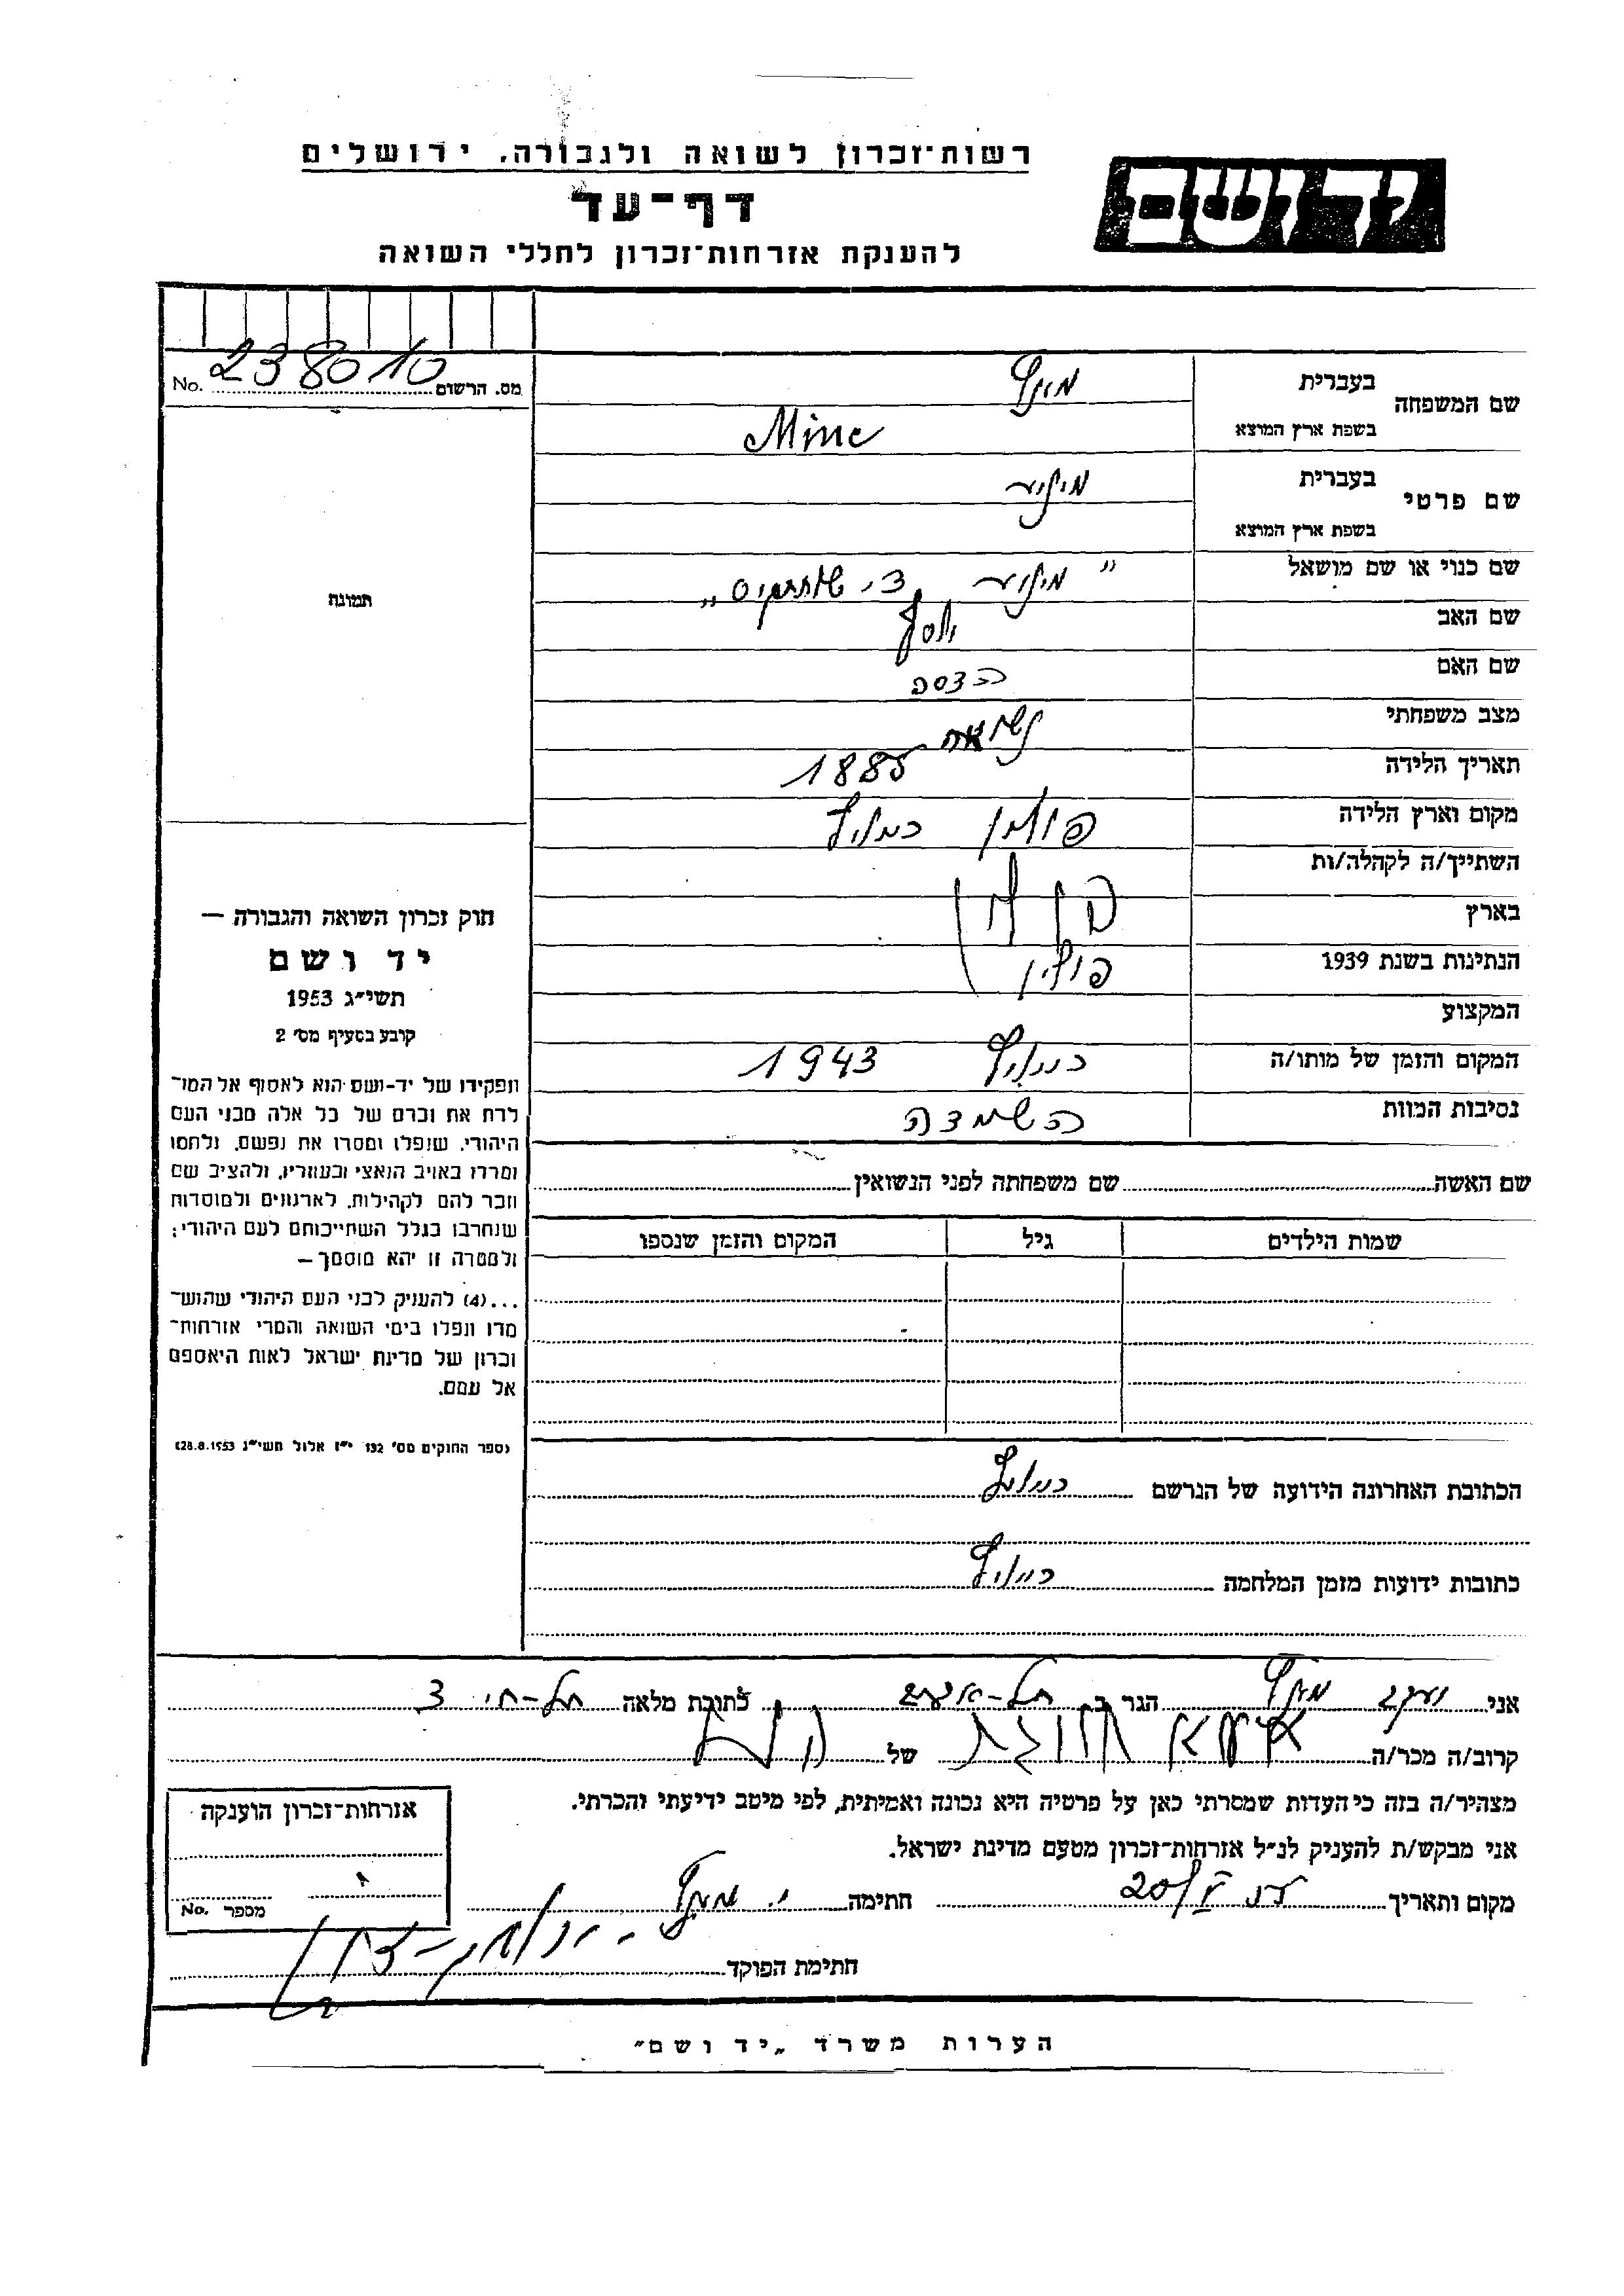 רשות־זכרון לשואה ולגבורה, ירושלים
יד ושם
דף־עד
להענקת אזרחות־זכרון לחללי השואה
מס. הרשום 238010 No.
שם המשפחה
בעברית מינץ
בשפת ארץ המוצא Minc
שם פרטי
בעברית
בשפת ארץ המוצא
שם כנוי או שם מושאל
שם האב יוסף
שם האם הדסה
מצב משפחתי נשואה
תאריך הלידה 1885
מקום וארץ הלידה פולין
השתייך/ה לקהלה/ות
בארץ פולין
הנתינות בשנת 1939 פולין
המקצוע
המקום והזמן של מותו/ה 1943
נסיבות המוות השמדה
תמונה
חוק זכרון השואה והגבורה —
יד ושם
תשי״ג 1953
קובע בסעיף מס׳ 2
תפקידו של יד-ושם הוא לאסוף אל המו־
לדת את זכרם של כל אלה מבני העם
היהודי, שנפלו ומסרו את נפשם, נלחמו
ומרדו באויב הנאצי ובעוזריו, ולהציב שם
וזכר להם לקהילות, לארגונים ולמוסדות
שנחרבו בגלל השתייכותם לעם היהודי;
ולמטרה זו יהא מוסמך —
...(4) להעניק לבני העם היהודי שהוש־
מדו ונפלו בימי השואה והמרי אזרחות־
זכרון של מדינת ישראל לאות היאספם
אל עמם.
(ספר החוקים מס׳ 132 י״ז אלול תשי״ג 28.8.1953)
שם האשה שם משפחתה לפני הנשואין
שמות הילדים גיל המקום והזמן שנספו
הכתובת האחרונה הידועה של הנרשם
כתובות ידועות מזמן המלחמה
אני יעקב מינץ הגר ב תל-אביב כתובת מלאה תל-חי 3
קרוב/ה מכר/ה של
מצהיר/ה בזה כי העדות שמסרתי כאן על פרטיה היא נכונה ואמיתית, לפי מיטב ידיעתי והכרתי.
אני מבקש/ת להעניק לנ״ל אזרחות־זכרון מטעם מדינת ישראל.
מקום ותאריך חתימה י. מינץ
חתימת הפוקד
אזרחות־זכרון הוענקה
מספר No.
הערות משרד „יד ושם״